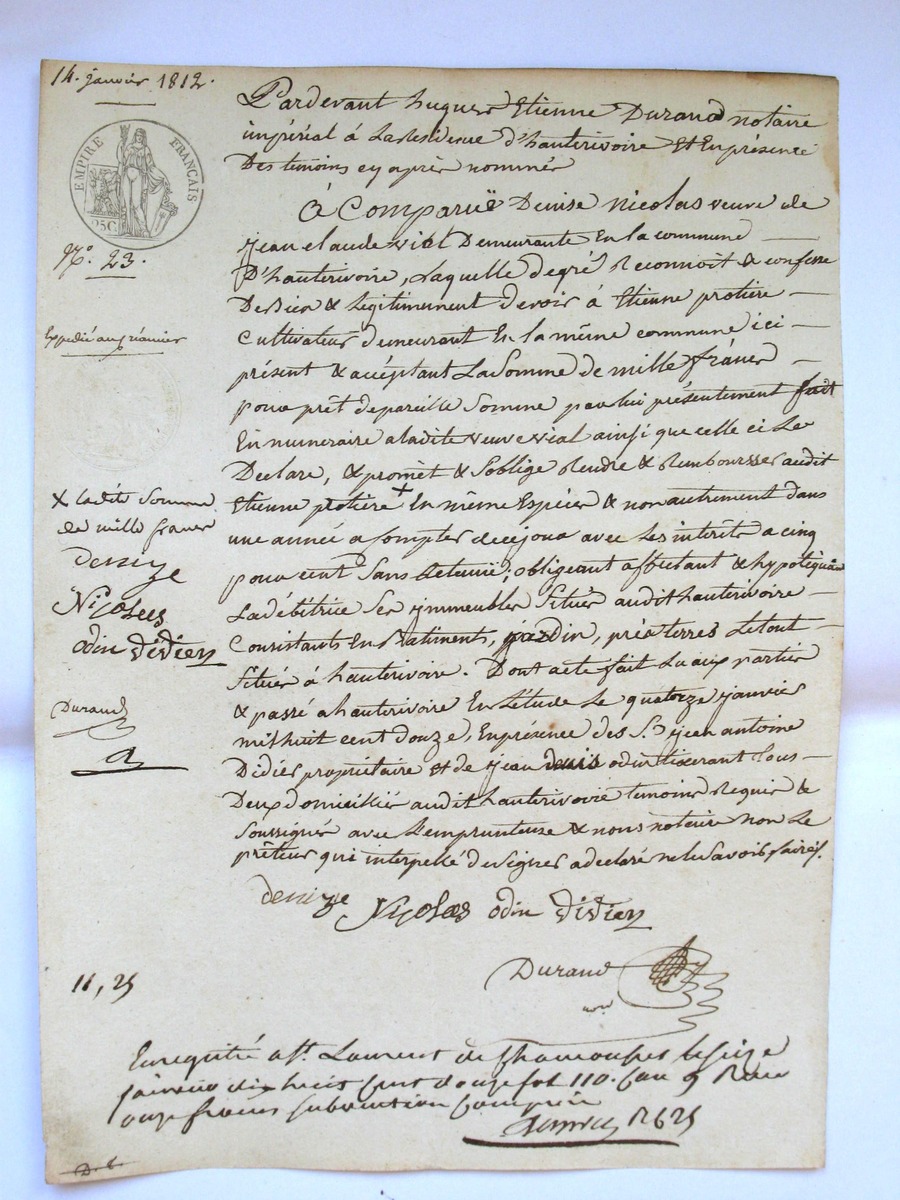 14. janvier 1812.
EMPIRE FRANÇAIS
25C
N.o 23.
Expedié au créancier
Pardevant hugues Etienne Durand notaire
impérial à La Residence d'hauterivoire Et En présence
Des temoins cy après nommés
à Comparuë Denise nicolas veuve de
jean claude vial Demeurante En la commune
D'hauterivoire, Laquelle de gré Reconnoit & confesse
De bien & Legitimement devoir à Etienne protiere
Cultivateur demeurant En la même commune ici
présent & acceptant La Somme de mille francs
pour prêt de pareille Somme par lui présentement fait
En numeraire a ladite veuve vial ainsi que celle ci Le
Declare, & promèt & Soblige Rendre & Rembourser audit
Etienne protiere + En même Espèces & non autrement dans
une année a compter de ce jour avec Les interets a cinq
pour cent Sans Retenüe; obligeant affectant & hypotéquant
La débitrice Ses jmmeubles Situés audit hauterivoire
Consistants En Batiments, jardin, prés terres Le tout
Situés à hauterivoire. Dont acte fait Lu aux parties
& passé a hauterivoire En L'étude Le quatorze janvier
mil huit cent douze, En présence des S.rs jean antoine
Didier propriétaire et de jean denis odin tisserant tous
Deux domiciliés audit hauterivoire temoins Requis &
Soussignés avec L'emprunteuse & nous notaire non Le
prêteur qui interpellé de signer a declaré ne le Savoir faire.
x la dite Somme
de mille francs
denize
Nicolas
odin didier
Durand
denize Nicolas odin didier
Durand
11, 25
Enregistré a St. Laurent de Chamousset le seize
janvier dix huit cent douze fol 110. Case 9 Reçu
onze francs subvention comprise